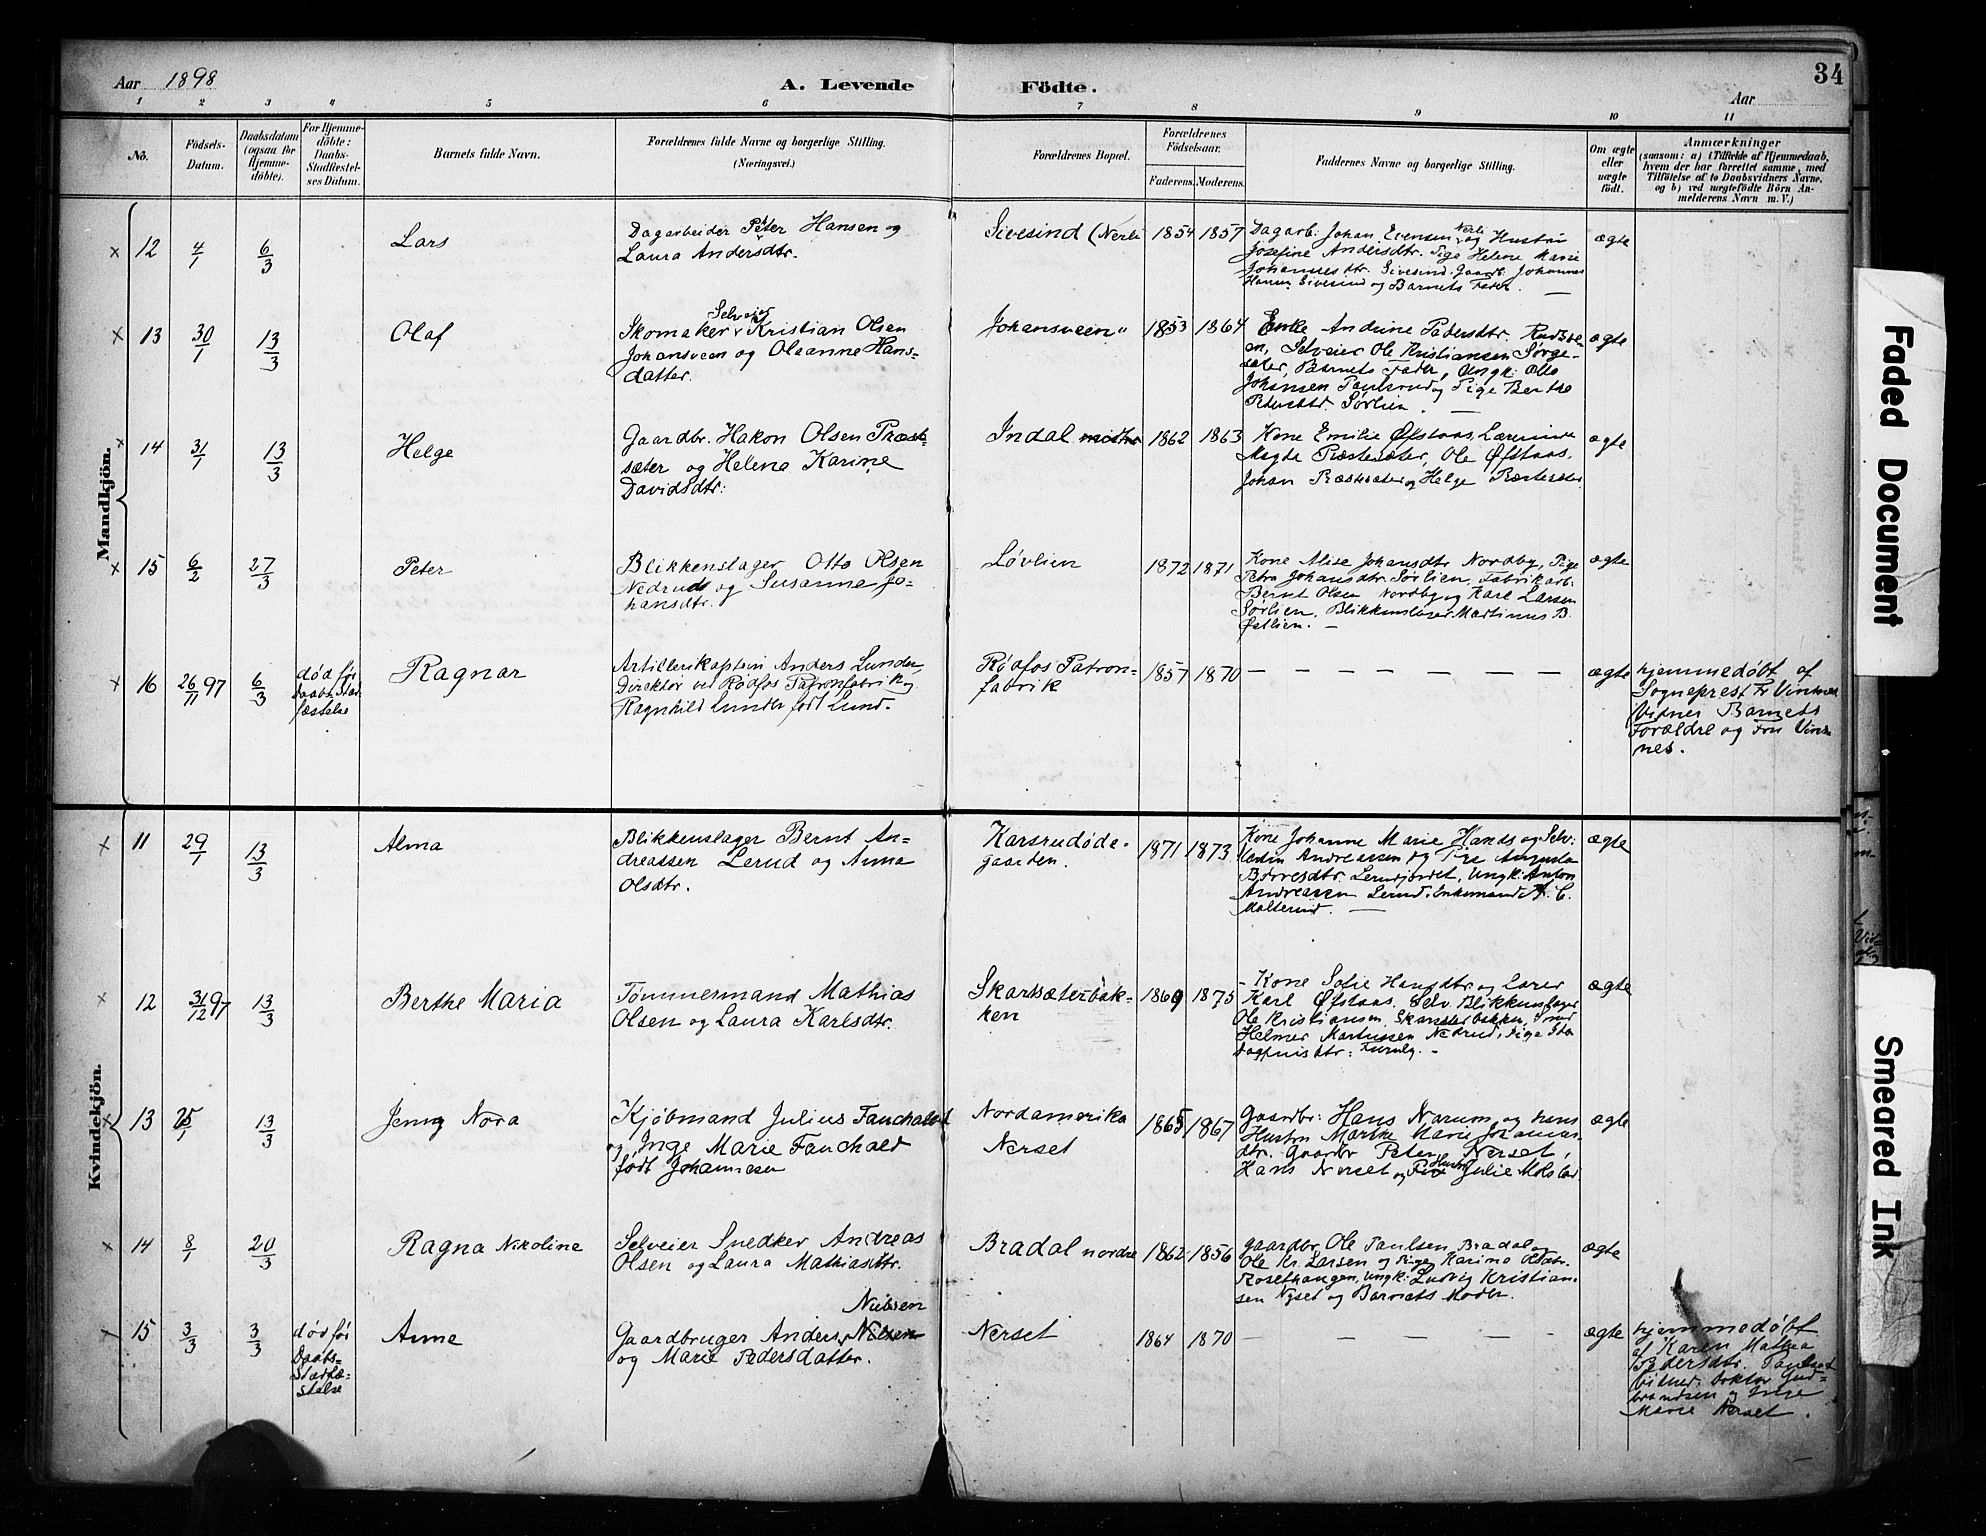 Aar 1898
A. Levende Födte.
Aar
34
1 2 3 4 5 6 7 8 9 10 11
No.
Födsels-
Datum.
Daabsdatum
(ogsaa for
Hjemme-
döbte).
For Hjemme-
döbte:
Daabs-
Stadfæstel-
ses Datum.
Barnets fulde Navn.
Forældrenes fulde Navne og borgerlige Stilling.
(Næringsvei.)
Forældrenes Bopæl.
Forældrenes
Födselsaar.
Faderens. Moderens.
Faddernes Navne og borgerlige Stilling.
Om ægte
eller
uægte
født.
Anmærkninger
(saasom: a) i Tilfælde af Hjemmedaab,
hvem der har forrettet samme, med
Tilföielse af to Daabsvidners Navne,
og b) ved uægtefödte Börn An-
melderens Navn m. V.)
Mandkjön.
× 12 4/1 6/3 Lars
Dagarbeider Peter Hansen og
Laura Andersdtr.
Sivesind (Nerli 1854 1857
Dagarb. Johan Evensen Nerli og Hustru
Josefine Andersdtr. Pige Helene Marie
Johannesdtr. Sivesind. Gaardb. Johannes
Hansen Sivesind og Barnets Fader. —
ægte
× 13 30/1 13/3 Olaf
Selveier
Skomaker Kristian Olsen
Johansveen og Oleanne Hans-
datter.
Johansveen 1853 1864
Enke Andrine Pedersdtr.
en, Selveier Ole Kristiansen Sörge-
sæter, Barnets Fader, Ungk: Otto
Johansen Paulsrud og Pige Berthe
Pedersdtr. Sørlien. —
ægte
× 14 31/1 13/3 Helge
Gaardbr. Hakon Olsen Præst-
sæter og Helena Karine
Davidsdtr:
Indal 1862 1863
Kone Emilie Øfstaas, Lærerinde
Magde Præstesæter, Ole Øfstaas,
Johan Præstesæter og Helge Præstesæter
ægte
× 15 6/2 27/3 Peter
Blikkenslager Otto Olsen
Nedrud og Susanne Jo-
hansdtr.
Løvlien 1872 1871
Kone Alise Johansdtr Nordby, Pige
Petra Johansdtr. Sørlien, Fabrikarb.
Bernt Olsen Nordby og Karl Larsen
Sørlien, Blikkenslager Martinus B.
Østlien. —
ægte
× 16 26/11 97 6/3
død før
Daabs Stad
fæstelse
Ragnar
Artillerikaptein Anders Lunder,
Direktør ved Rødfos Patronfabrik og
Ragnhild Lunder født Lund.
Rødfos Patron-
fabrik
1857 1870 — — — — — — ægte
hjemmedøbt af
Sogneprest Fr Vinsnes
(Vidner Barnets
Forældre og Fru Vins-
nes.
Kvindekjön.
× 11 29/1 13/3 Alma
Blikkenslager Bernt An-
dreassen Lerud og Anna
Olsdtr.
Karsrudøde-
gaarden.
1871 1873
Kone Johanne Marie Hansdtr og Selv:
Martin Andreassen og Pige Augusta
Lerudjordet, Ungk: Anton
Andreassen Lerud. Enkemand A. C.
Malterud. —
ægte
× 12 31/12 97 13/3 Berthe Maria
Tømmermand Mathias
Olsen og Laura Karlsdtr.
Skarsæterbak-
ken
1869 1875
— Kone Sofie Hansdtr og Lærer
Karl Øfstaas, Selv. Blikkenslager
Ole Kristiansen Skarsæterbakken, Smed
Helmer Martinssen Nedrud, Pige
Dagfinisdtr: Furuly. —
ægte
× 13 25/1 13/3 Jenny Nora
Kjøbmand Julius Fauchald
og Inge Marie Fauchald
født Johannesen
Nordamerika
Nerset
1865 1867
Gaardbr: Hans Narum og hans
Hustru Marthe Marie Johannes-
dtr. Gaardbr Peter Nerset,
Hans Nerset og Hustru Julie
ægte
× 14 8/1 20/3 Ragna Nikoline
Selveier Snedker Andreas
Olsen og Laura Mathiasdtr.
Bradal nordre 1862 1856
Gaardbr. Ole Paulsen Bradal og
Ole Kr. Larsen og Pige Karina Olsdtr.
Rosethaugen, Ungk: Ludvig Kristian-
sen Nyset og Barnets Moder.
ægte
15 3/3 3/3
død før
Daabs-
Stadfæ-
stelse
Anne
Nielsen
Gaardbruger Anders Nilsen
og Marie Pedersdatter.
Nerset
1864 1870 — — — — — — ægte
hjemmedøbt
af Karen Mathea
Pedersdtr.
Vidner: Doktor Gud-
brandsen og Inge
Marie Nerset.
Faded Document
Smeared Ink